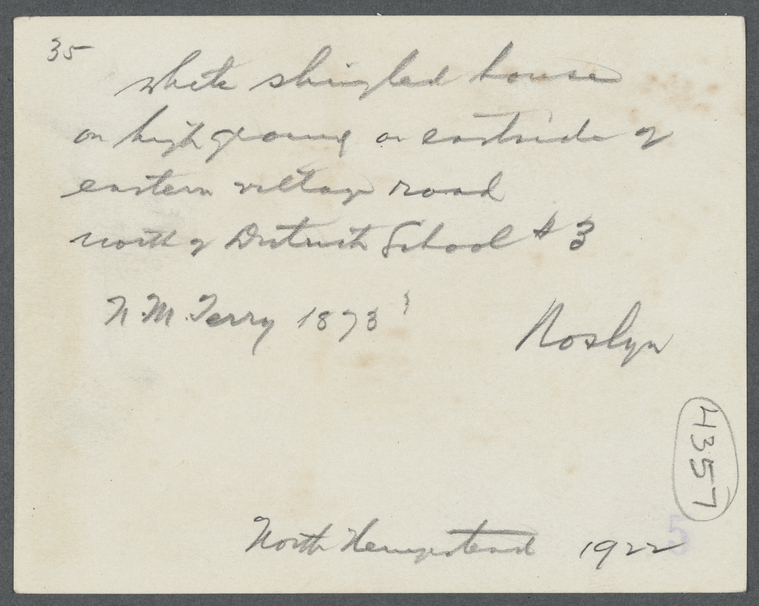 35
white shingled house
on high ground on east side of
eastern village road
north of District School # 3
N. M. Terry 1873 ?
Roslyn
4357
North Hempstead 1922